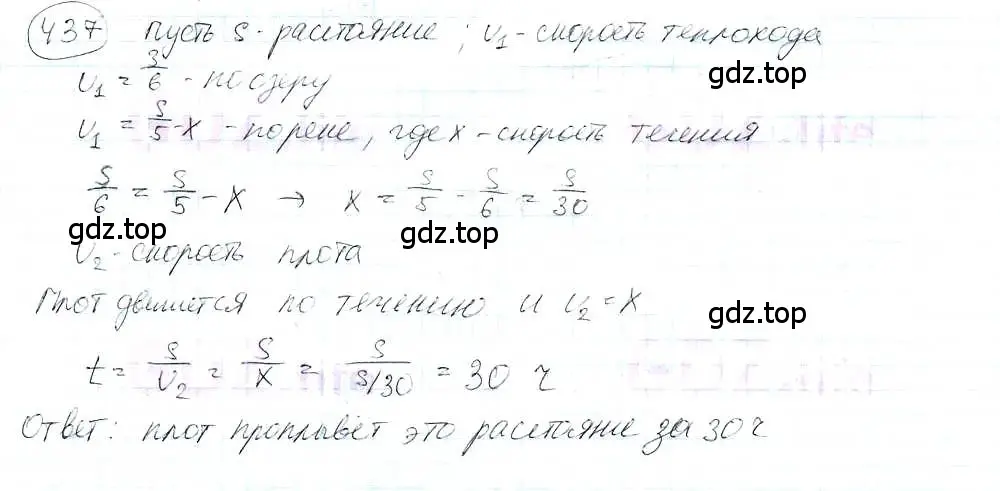 437 пусть S - расстояние ; υ₁ - скорость теплохода
gdz.top
υ₁ = 3/6 - по озеру
υ₁ = S/5 - x - по реке, где x - скорость течения
S/6 = S/5 - x → x = S/5 - S/6 = S/30
gdz.top
gdz.top
υ₂ - скорость плота
Плот движется по течению и υ₂ = x
gdz.top
t = S/υ₂ = S/x = S/(S/30) = 30 ч
Ответ: плот проплывёт это расстояние за 30 ч